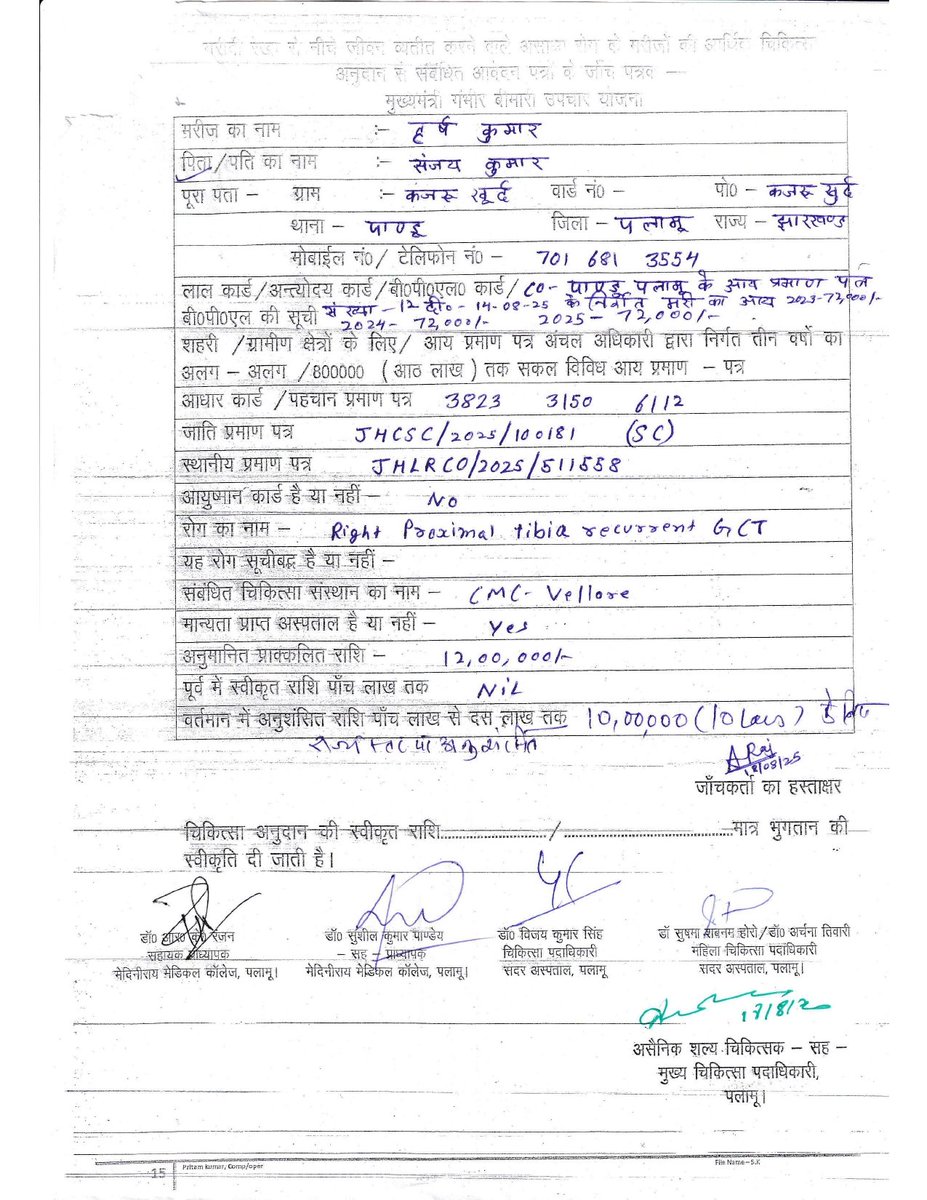 गरीबी रेखा से नीचे जीवन व्यतीत करने वाले असाध्य रोग के मरीजों की आर्थिक चिकित्सा
अनुदान से संबंधित आवेदन पत्रों के जाँच पत्रक —
मुख्यमंत्री गंभीर बीमारी उपचार योजना
मरीज का नाम :- हर्ष कुमार
पिता/पति का नाम :- संजय कुमार
पूरा पता – ग्राम :- कजरू खूर्द वार्ड नं० – पो० – कजरू खुर्द
थाना – पाण्डू जिला – पलामू राज्य – झारखण्ड
मोबाईल नं०/ टेलिफोन नं० – 701 681 3554
लाल कार्ड/अन्त्योदय कार्ड/बी०पी०एल० कार्ड/ CO- पाण्डू पलामू के आय प्रमाण पत्र
बी०पी०एल की सूची संख्या -12 दि०- 14-08-25 के निर्गत का आय 2023-72,000/-
2024- 72,000/- 2025- 72,000/-
शहरी /ग्रामीण क्षेत्रों के लिए/ आय प्रमाण पत्र अंचल अधिकारी द्वारा निर्गत तीन वर्षो का
अलग – अलग /800000 (आठ लाख) तक सकल विविध आय प्रमाण – पत्र
आधार कार्ड /पहचान प्रमाण पत्र 3823 3150 6112
जाति प्रमाण पत्र JHCSC/2025/100181 (SC)
स्थानीय प्रमाण पत्र JHLRCO/2025/511558
आयुष्मान कार्ड है या नहीं – NO
रोग का नाम – Right Proximal tibia recurrent GCT
यह रोग सूचीबद्ध है या नहीं –
संबंधित चिकित्सा संस्थान का नाम – CMC- Vellore
मान्यता प्राप्त अस्पताल है या नहीं – Yes
अनुमानित प्राक्कलित राशि – 12,00,000/-
पूर्व में स्वीकृत राशि पाँच लाख तक NiL
वर्तमान में अनुशंसित राशि पाँच लाख से दस लाख तक 10,00000 (10 Lacs) के लिए
राज्य स्तर पर अनुशंसित
ARaj
18/08/25
जाँचकर्ता का हस्ताक्षर
चिकित्सा अनुदान की स्वीकृत राशि............../..............................मात्र भुगतान की
स्वीकृति दी जाती है।
डॉ० आर० के० रंजन डॉ० सुशील कुमार पाण्डेय डॉ० विजय कुमार सिंह डॉ सुषमा शबनम होरो/डॉ० अर्चना तिवारी
सहायक प्राध्यापक – सह – प्राध्यापक चिकित्सा पदाधिकारी महिला चिकित्सा पदाधिकारी
मेदिनीराय मेडिकल कॉलेज, पलामू। मेदिनीराय मेडिकल कॉलेज, पलामू। सदर अस्पताल, पलामू सदर अस्पताल, पलामू।
17/8/20
असैनिक शल्य चिकित्सक – सह –
मुख्य चिकित्सा पदाधिकारी,
पलामू।
15 Pritam kumar, Comp/oper File Name – S.K